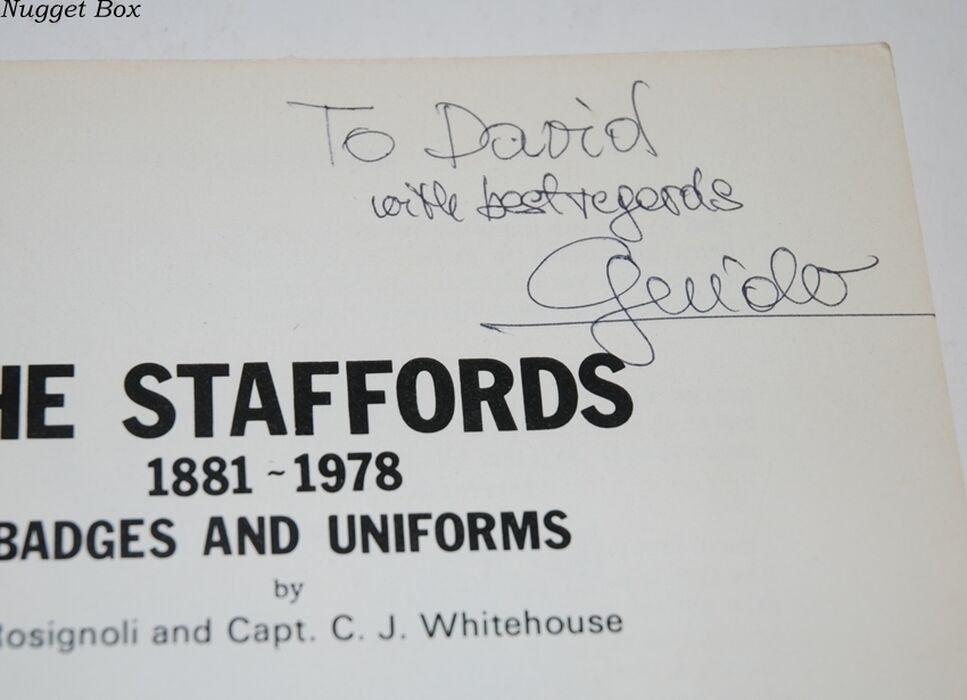 Nugget Box
To David
with best regards
Guido
HE STAFFORDS
1881 ~ 1978
BADGES AND UNIFORMS
by
Rosignoli and Capt. C. J. Whitehouse